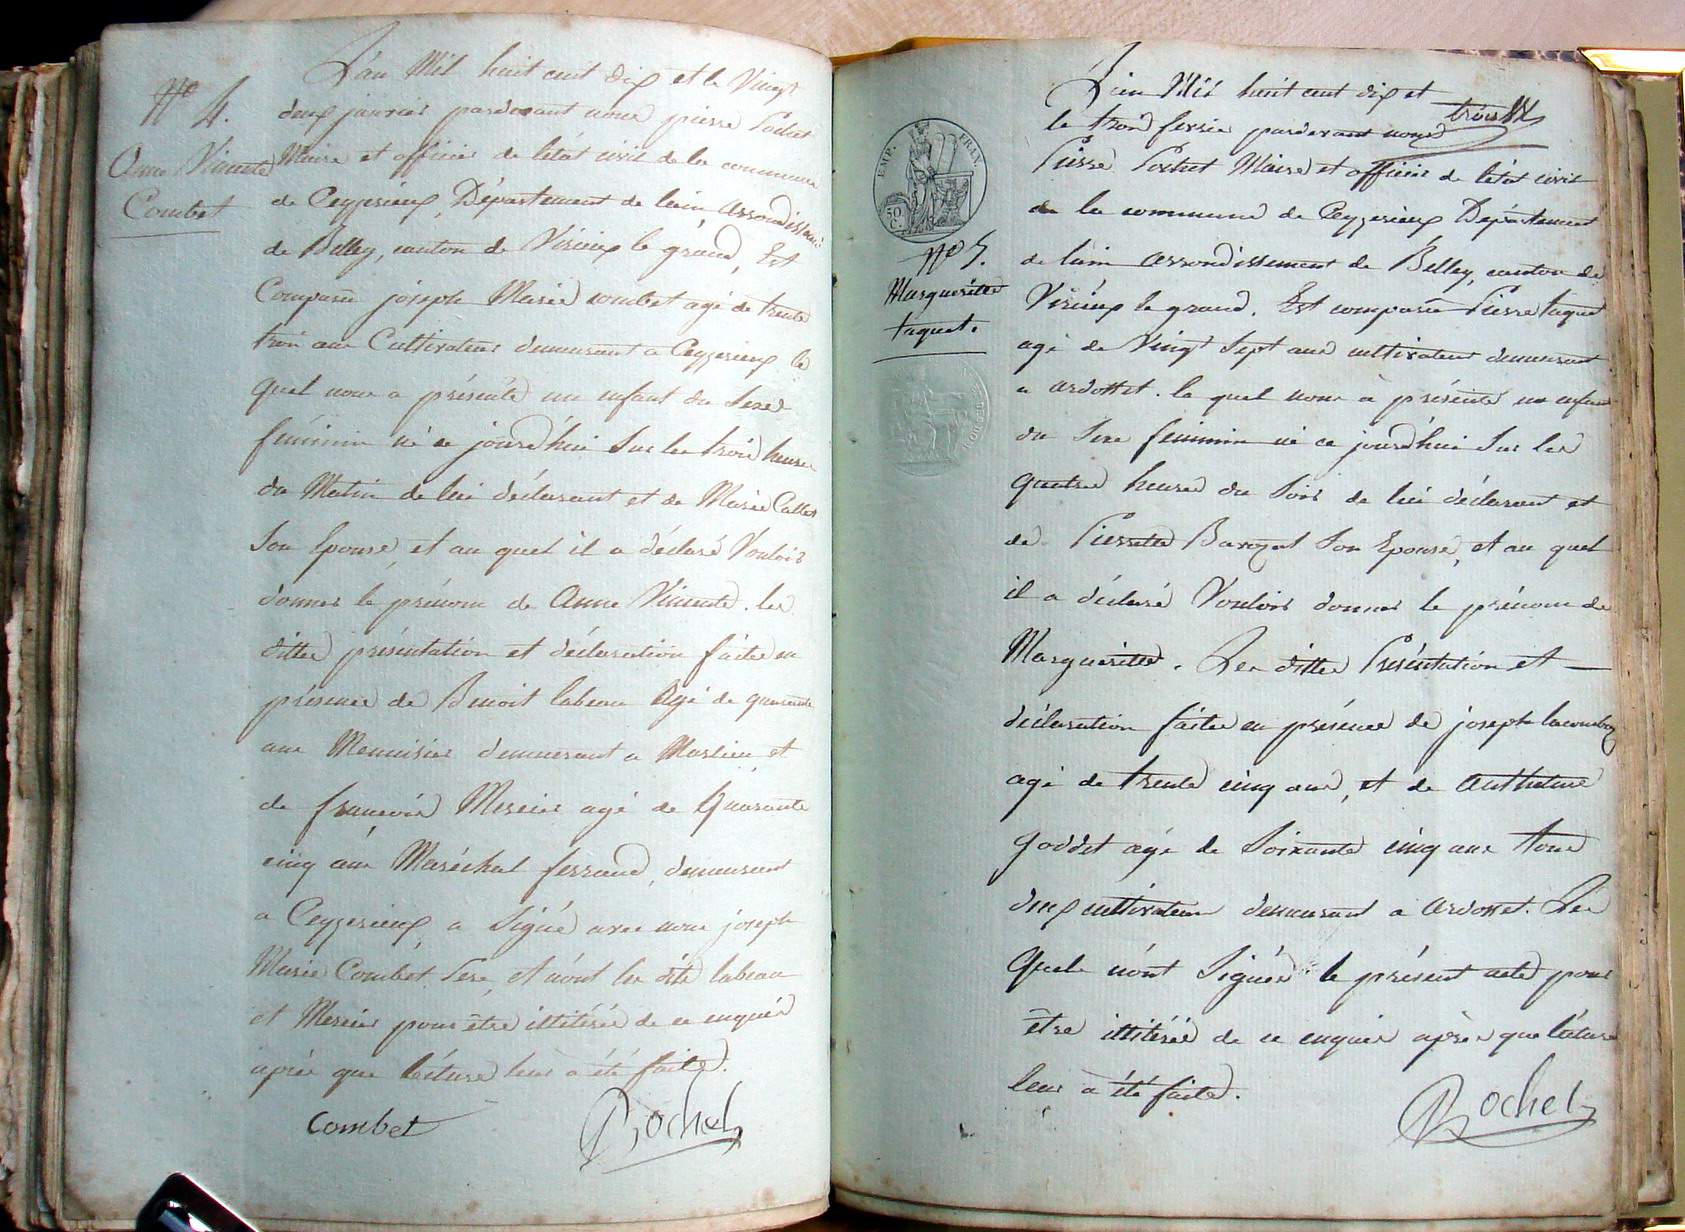 N° 4.
Anne Vincente
Combet
L'an Mil huit cent dix et le Vingt
deux janvier pardevant nous pierre Pochet
Maire et officier de l'état civil de la commune
de Ceyzerieux, Département de lain, arrondissement
de Belley, canton de Virieux le grand, Est
Comparu joseph Marie combet agé de trente
trois ans Cultivateur demeurant a Ceyzerieux le
quel nous a présenté un enfant du Sexe
féminin né ce jourd'hui Sur les trois heures
du Matin de lui déclarant et de Marie Callet
Son Epouse, et au quel il a déclaré Vouloir
donner le prénom de Anne Vincente. les
dittes présentation et déclaration faites en
présence de Benoit labeau Agé de quarante
ans Menuisier demeurant a Marlieu et
de francois Mercier agé de Quarante
cinq ans Maréchal ferrand, demeurant
a Ceyzerieux, a Signé avec nous joseph
Marie Combet Pere, et n'ont les dits labeau
et Mercier pour être illitérés de ce enquis
après que léture leur a été faite.
combet
Pochet
EMP. FRAN.
50 C.
N° 5.
Margueritte
taquet.
L'an Mil huit cent dix et
le trois fevrier pardevant nous
trois
Pierre Pochet Maire et officier de l'état civil
de la commune de Ceyzerieux Département
de lain arrondissement de Belley, canton de
Virieux le grand. Est comparu Pierre taquet
agé de Vingt Sept ans cultivateur demeurant
a ardosset. le quel nous a présenté un enfant
du Sexe féminin né ce jourd'hui Sur les
quatre heures du Soir de lui déclarant et
de Pierrette Bavozat Son Epouse, et au quel
il a déclaré Vouloir donner le prénom de
Marguerite. Les dittes Présentation et
déclaration faites en présence de joseph lacombe
agé de trente cinq ans, et de Anthelme
goddet agé de Soixante cinq ans tous
deux cultivateur demeurant a ardosset. Les
Quels n'ont Signés le présent acte pour
être illitérés de ce enquis après que léture
leur a été faite.
Pochet